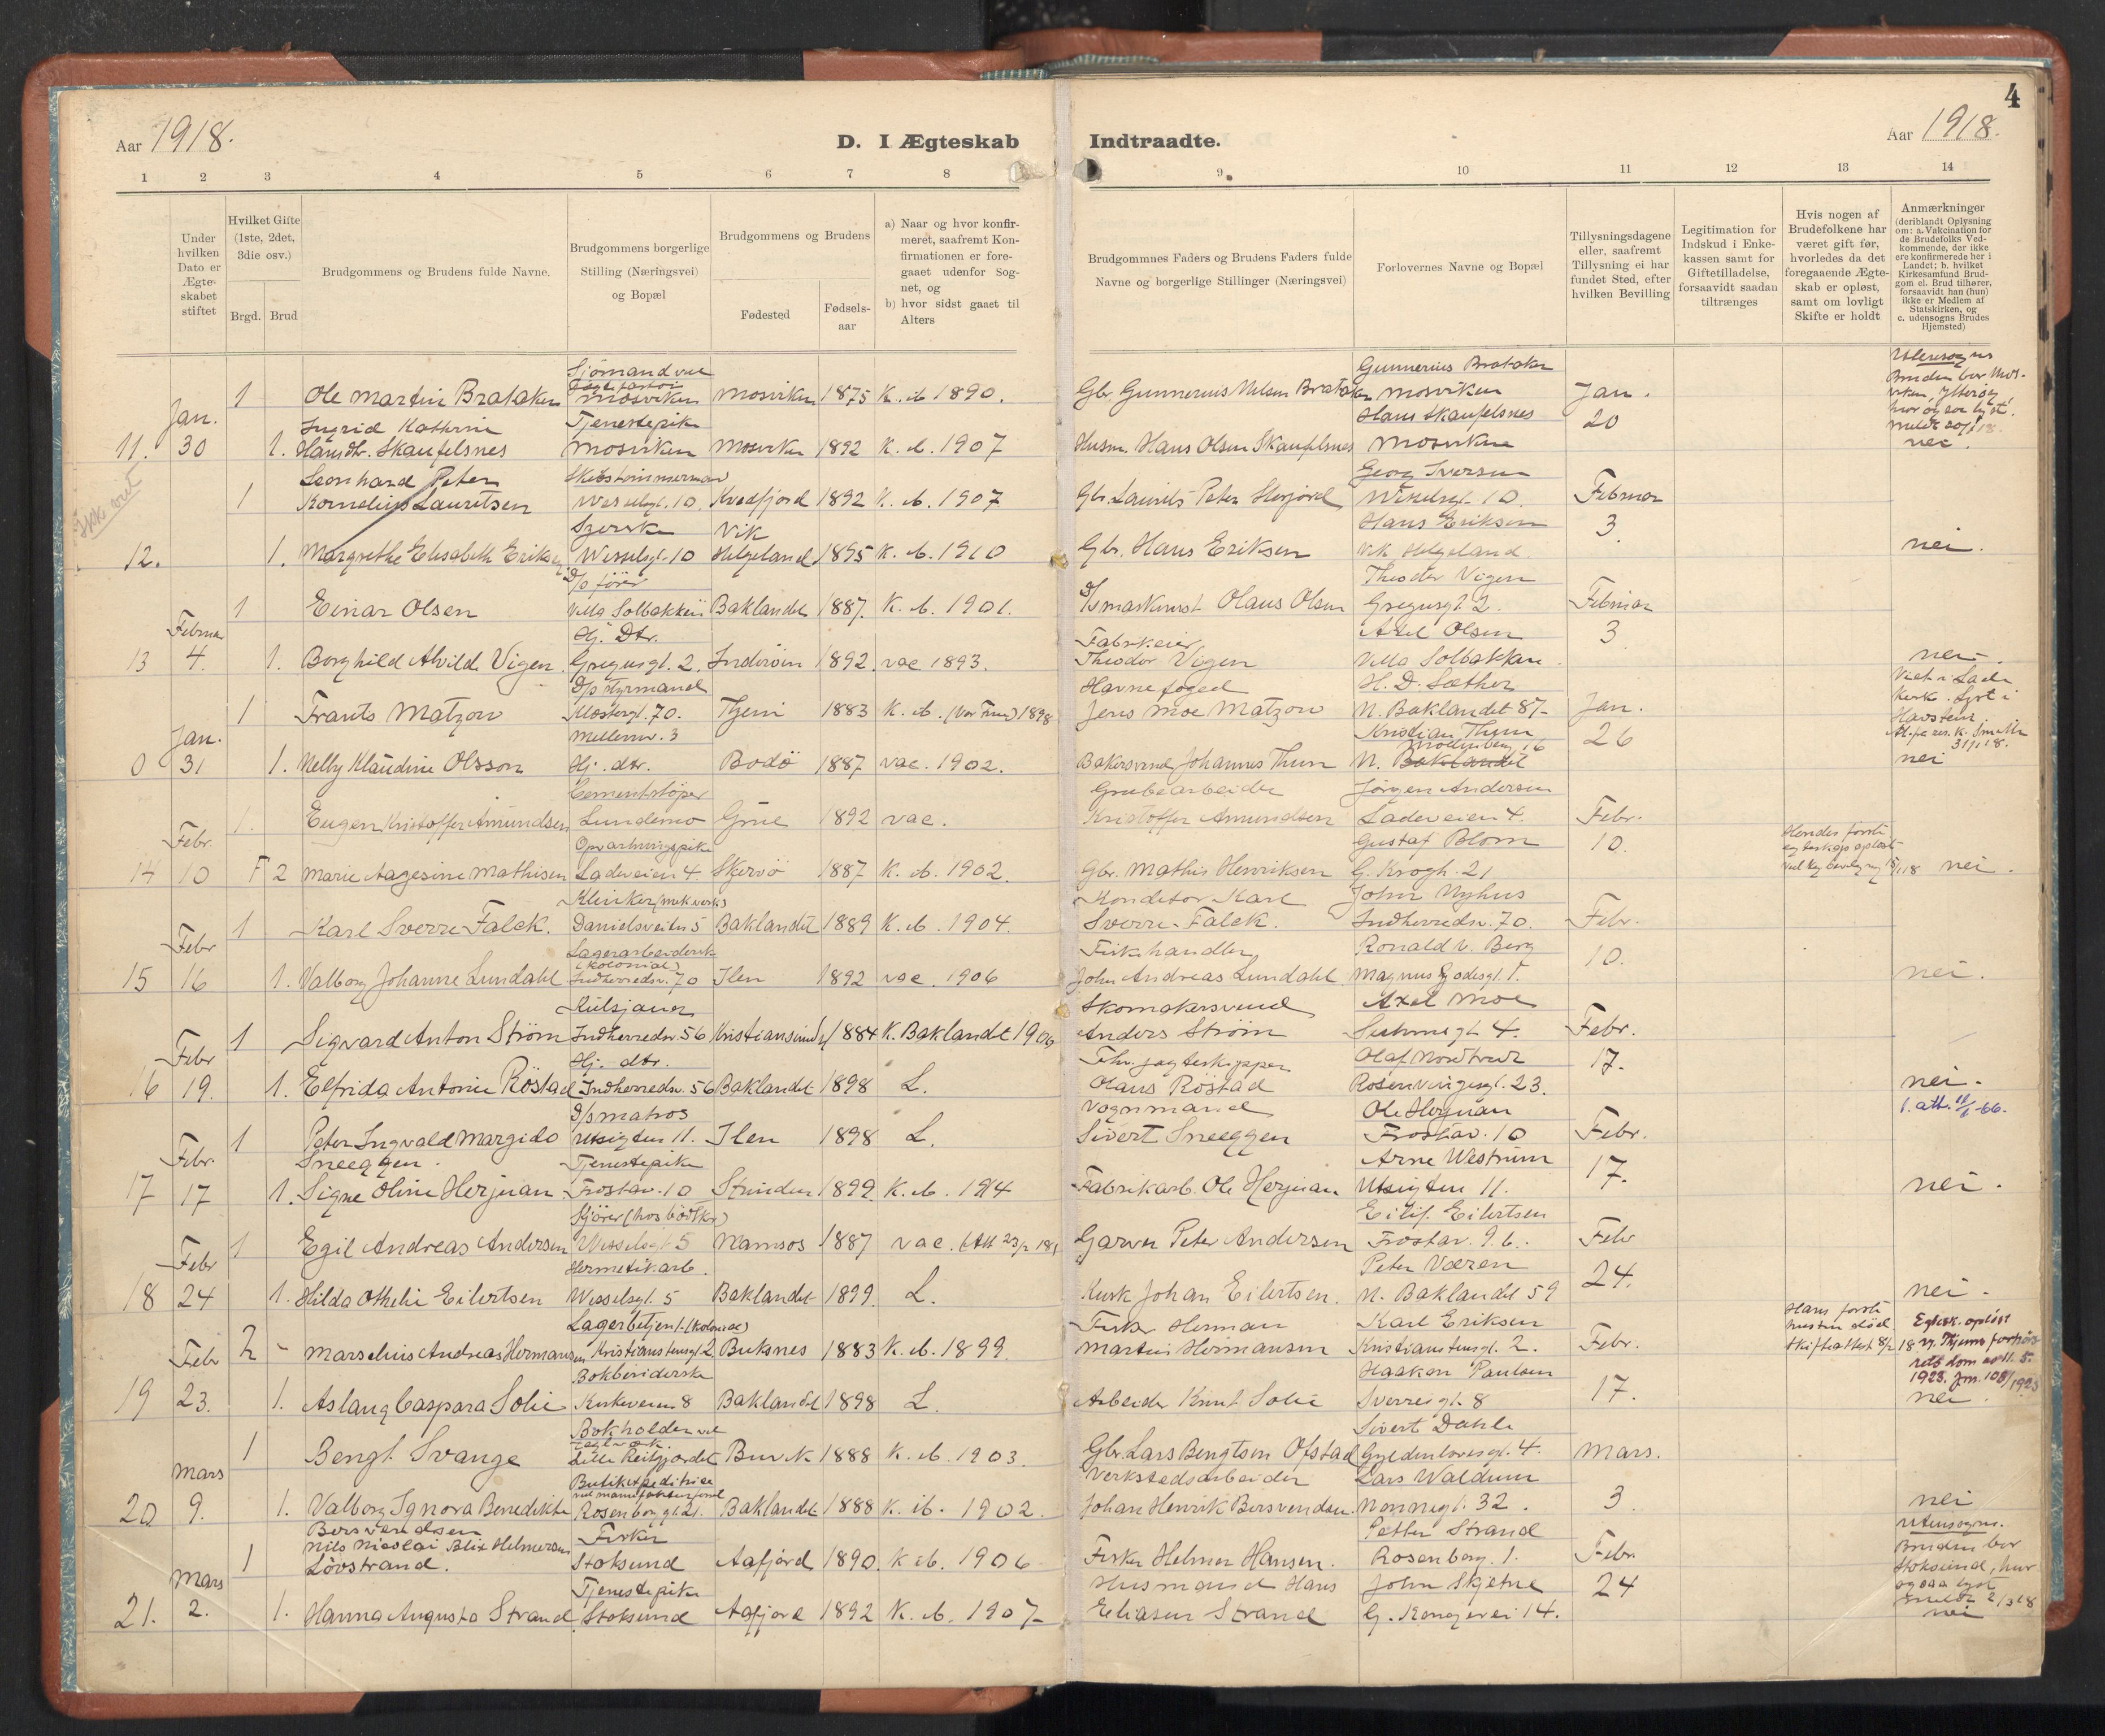 4
Aar 1918.
D. I Ægteskab
Indtraadte.
Aar 1918.
1 2 3 4 5 6 7 8
9 10 11 12 13 14
Under hvilken Dato er Ægteskabet stiftet
Hvilket Gifte (1ste, 2det, 3die osv.)
Brgd. Brud
Brudgommens og Brudens fulde Navne.
Brudgommens borgerlige Stilling (Næringsvei) og Bopæl
Brudgommens og Brudens
Fødested
Fødsels-aar
a) Naar og hvor konfir-
meret, saafremt Kon-
firmationen er fore-
gaaet udenfor Sog-
net, og
b) hvor sidst gaaet til
Alters
Brudgommnes Faders og Brudens Faders fulde
Navne og borgerlige Stillinger (Næringsvei)
Forlovernes Navne og Bopæl
Tillysningsdagene
eller, saafremt
Tillysning ei har
fundet Sted, efter
hvilken Bevilling
Legitimation for
Indskud i Enke-
kassen samt for
Giftetilladelse,
forsaavidt saadan
tiltrænges
Hvis nogen af
Brudefolkene har
været gift før,
hvorledes da det
foregaaende Ægte-
skab er opløst,
samt om lovligt
Skifte er holdt
Anmærkninger
(deriblandt Oplysning
om: a. Vakcination for
de Brudefolks Ved-
kommende, der ikke
ere konfirmerede her i
Landet; b. hvilket
Kirkesamfund Brud-
gom el. Brud tilhører,
forsaavidt han (hun)
ikke er Medlem af
Statskirken, og
c. udensogns Brudes
Hjemsted)
Sjömand ved
1 Ole Martin Brataker Mosviken Mosviken 1875 K. ib 1890.
Gbr. Gunnerius Nilsen Brataker Gunnerius Brataker Mosviken Jan. 20
Utensogns
Bruden bor Mos-
viken, Ytterøy,
hvor ogsaa lyst.
nei
11. Jan. 30 1. Ingrid Kathrine Hansdtr. Skaufelsnes Tjenestepike Mosviken Mosviken 1892 K. ib. 1907
Husm. Hans Olsen Skaufelsnes Hans Skaufelsnes Mosviken
Ikke viet
1 Leonhard Peter Kornelius Lauritsen Skibstømmermand Wesselsgt. 10 Kvedfjord 1892 K. ib. 1907
Gbr. Laurits Peter Georg Iversen Wesselsgt. 10 Februar 3.
12. 1. Margrethe Elisabeth Eriksen Wesselsgt. 10 Vik Helgeland 1895 K. ib. 1910
Gbr. Hans Eriksen Hans Eriksen Vik Helgeland nei.
1 Einar Olsen D/s fører Villa Solbakken Baklandet 1887. K. ib. 1901.
D/s maskinist Olaus Olsen Theodor Vigen Gregusgt. 2. Februar 3
13 Februar 4. 1. Borghild Alvilde Vigen Hj. Dtr. Gregusgt. 2. Inderøen 1892. vac 1893.
Fabrikeier Theodor Vigen Axel Olsen Villa Solbakken. nei.
1 Frants Matzow D/s styrmand Klostergt. 70. Hjem 1883 K. ib. (Vor Frue) 1898
Havnefoged Jens Moe Matzow H. D. Sæther N. Baklandet 87 Jan. 26
Viet i Lade
Kirke. Lyst i
Havstein
31/1 18.
nei
0 Jan. 31 1. Nelly Klaudine Olsson Møllenv. 3 Hj. dtr. Bodö 1887 vac. 1902.
Bakersvend Johannes Thun Kristian Thun Møllenberg 16 N. Baklandet
1. Eugen Kristoffer Amundsen Cementstøper Lundemo Grue 1892 vac.
Grubearbeider Kristoffer Amundsen Jörgen Andersen Ladeveien 4. Febr. 10.
14 Febr. 10 F 2 Marie Aagesine Mathisen Opvartningspike Ladeveien 4. Skjervö 1887 K. ib. 1902.
Gbr. Mathis Henriksen Gustaf Blom G. Krogh. 21
Hendes første egteskap opløst ved kgl. bevilgning 15/1 18 nei.
1 Karl Sverre Falck. Klinker (mek verks) Danielsveiten 5 Baklandet 1889 K. ib. 1904.
Konditor Karl Sverre Falck. John Nyhus Indherredsv. 70. Febr. 10.
15 Febr 16 1. Valborg Johanne Lundahl Lagerarbeiderske (kolonial) Indherredsv. 70 Ilen 1892 vac. 1906
Fiskhandler John Andreas Lundahl Ronald V. Berg Magnus Godesgt. 1. nei.
1 Sigvard Anton Ström Kulsjauer Indherredsv. 56 Kristiansund 1884 K. Baklandet 1900
Skomakersvend Anders Ström Axel Moe 4. Febr. 17.
16 Febr 19. 1. Elfrida Antonie Röstad Hj. dtr. Indherredsv. 56 Baklandet 1898 L.
Fhv. jagteskipper Olaus Röstad Olaf Nordtvedt Rosenvingesgt. 23. nei.
1. att. 11/1-66.
1 Peter Ingvald Margido Sneeggen. D/s matros Utsigten 11. Ilen 1898 L.
Vognmand Sivert Sneeggen Ole Herjuan Frostav. 10 Febr. 17.
17 Febr. 17 1. Signe Oline Herjuan Tjenestepike Frostav. 10 Strinden 1899. K. ib. 1914
Fabrikarb. Ole Herjuan Arne Westrum Utsigten 11. nei.
1 Egil Andreas Andersen Kjører (hos bödker) Wesselsgt 5 Namsos 1887 vac. (Att 23/2 18)
Garver Peter Andersen Eilif. Eilertsen Frostav. 9b. Febr 24.
18 Febr 24 1. Hilda Othelie Eilertsen Hermetikarb. Wesselsgt. 5 Baklandet 1899. L.
Kusk Johan Eilertsen. Peter Væren N. Baklandet 59 nei.
2 Marselius Andreas Hermansen Lagerbetjent. (kolonial) Kristianstensgt. 2 Buksnes 1883 K. ib. 1899
Fisker Herman Martin Hermansen Karl Eriksen Kristianstensgt. 2. Febr. 17.
Hans første hustru død. Skifteattest 8/2 18
Egtesk. opløst
v. Thjems forhørs
rets dom av 11. 5.
1923. Jm. 108/1923
nei.
19 Febr 23. 1. Aslaug Caspara Solie Bokbinderske Kirkeveien 8 Baklandet 1898 L.
Arbeider Knut Solie Haakon Paulsen Sverresgt. 8
1 Bengt Svange Bokholder ved teglverk. Lille Leitfjordet Burvik 1888 K. ib. 1903.
Gbr. Lars Bengtsen Ofstad Sivert Dahle Gyldenløvesgt. 4. Mars. 3.
20 Mars 9. 1. Valborg Ignora Benedikte Bersvendsen Butikexpeditrice Rosenborggt. 21. Baklandet 1888 K. ib. 1902.
Verkstedsarbeider Johan Henrik Bersvendsen. Lars Waldum Nonnegt. 32. nei
1 Nils Nicolai Blix Helmersen Lövstrand. Fisker Stoksund Aafjord 1890. K. ib. 1906
Fisker Helmer Hansen. Petter Strand Rosenborg. 1. Febr. 24
Utensogns.
Bruden bor
Stoksund, hvor
ogsaa lyst
2/3 18
nei
21. Mars 2. 1. Hanna Augusta Strand Tjenestepike Stoksund Aafjord 1892 K. ib. 1907
Husmand Hans Eliasen Strand John Skjetne G. Kongevei 14.